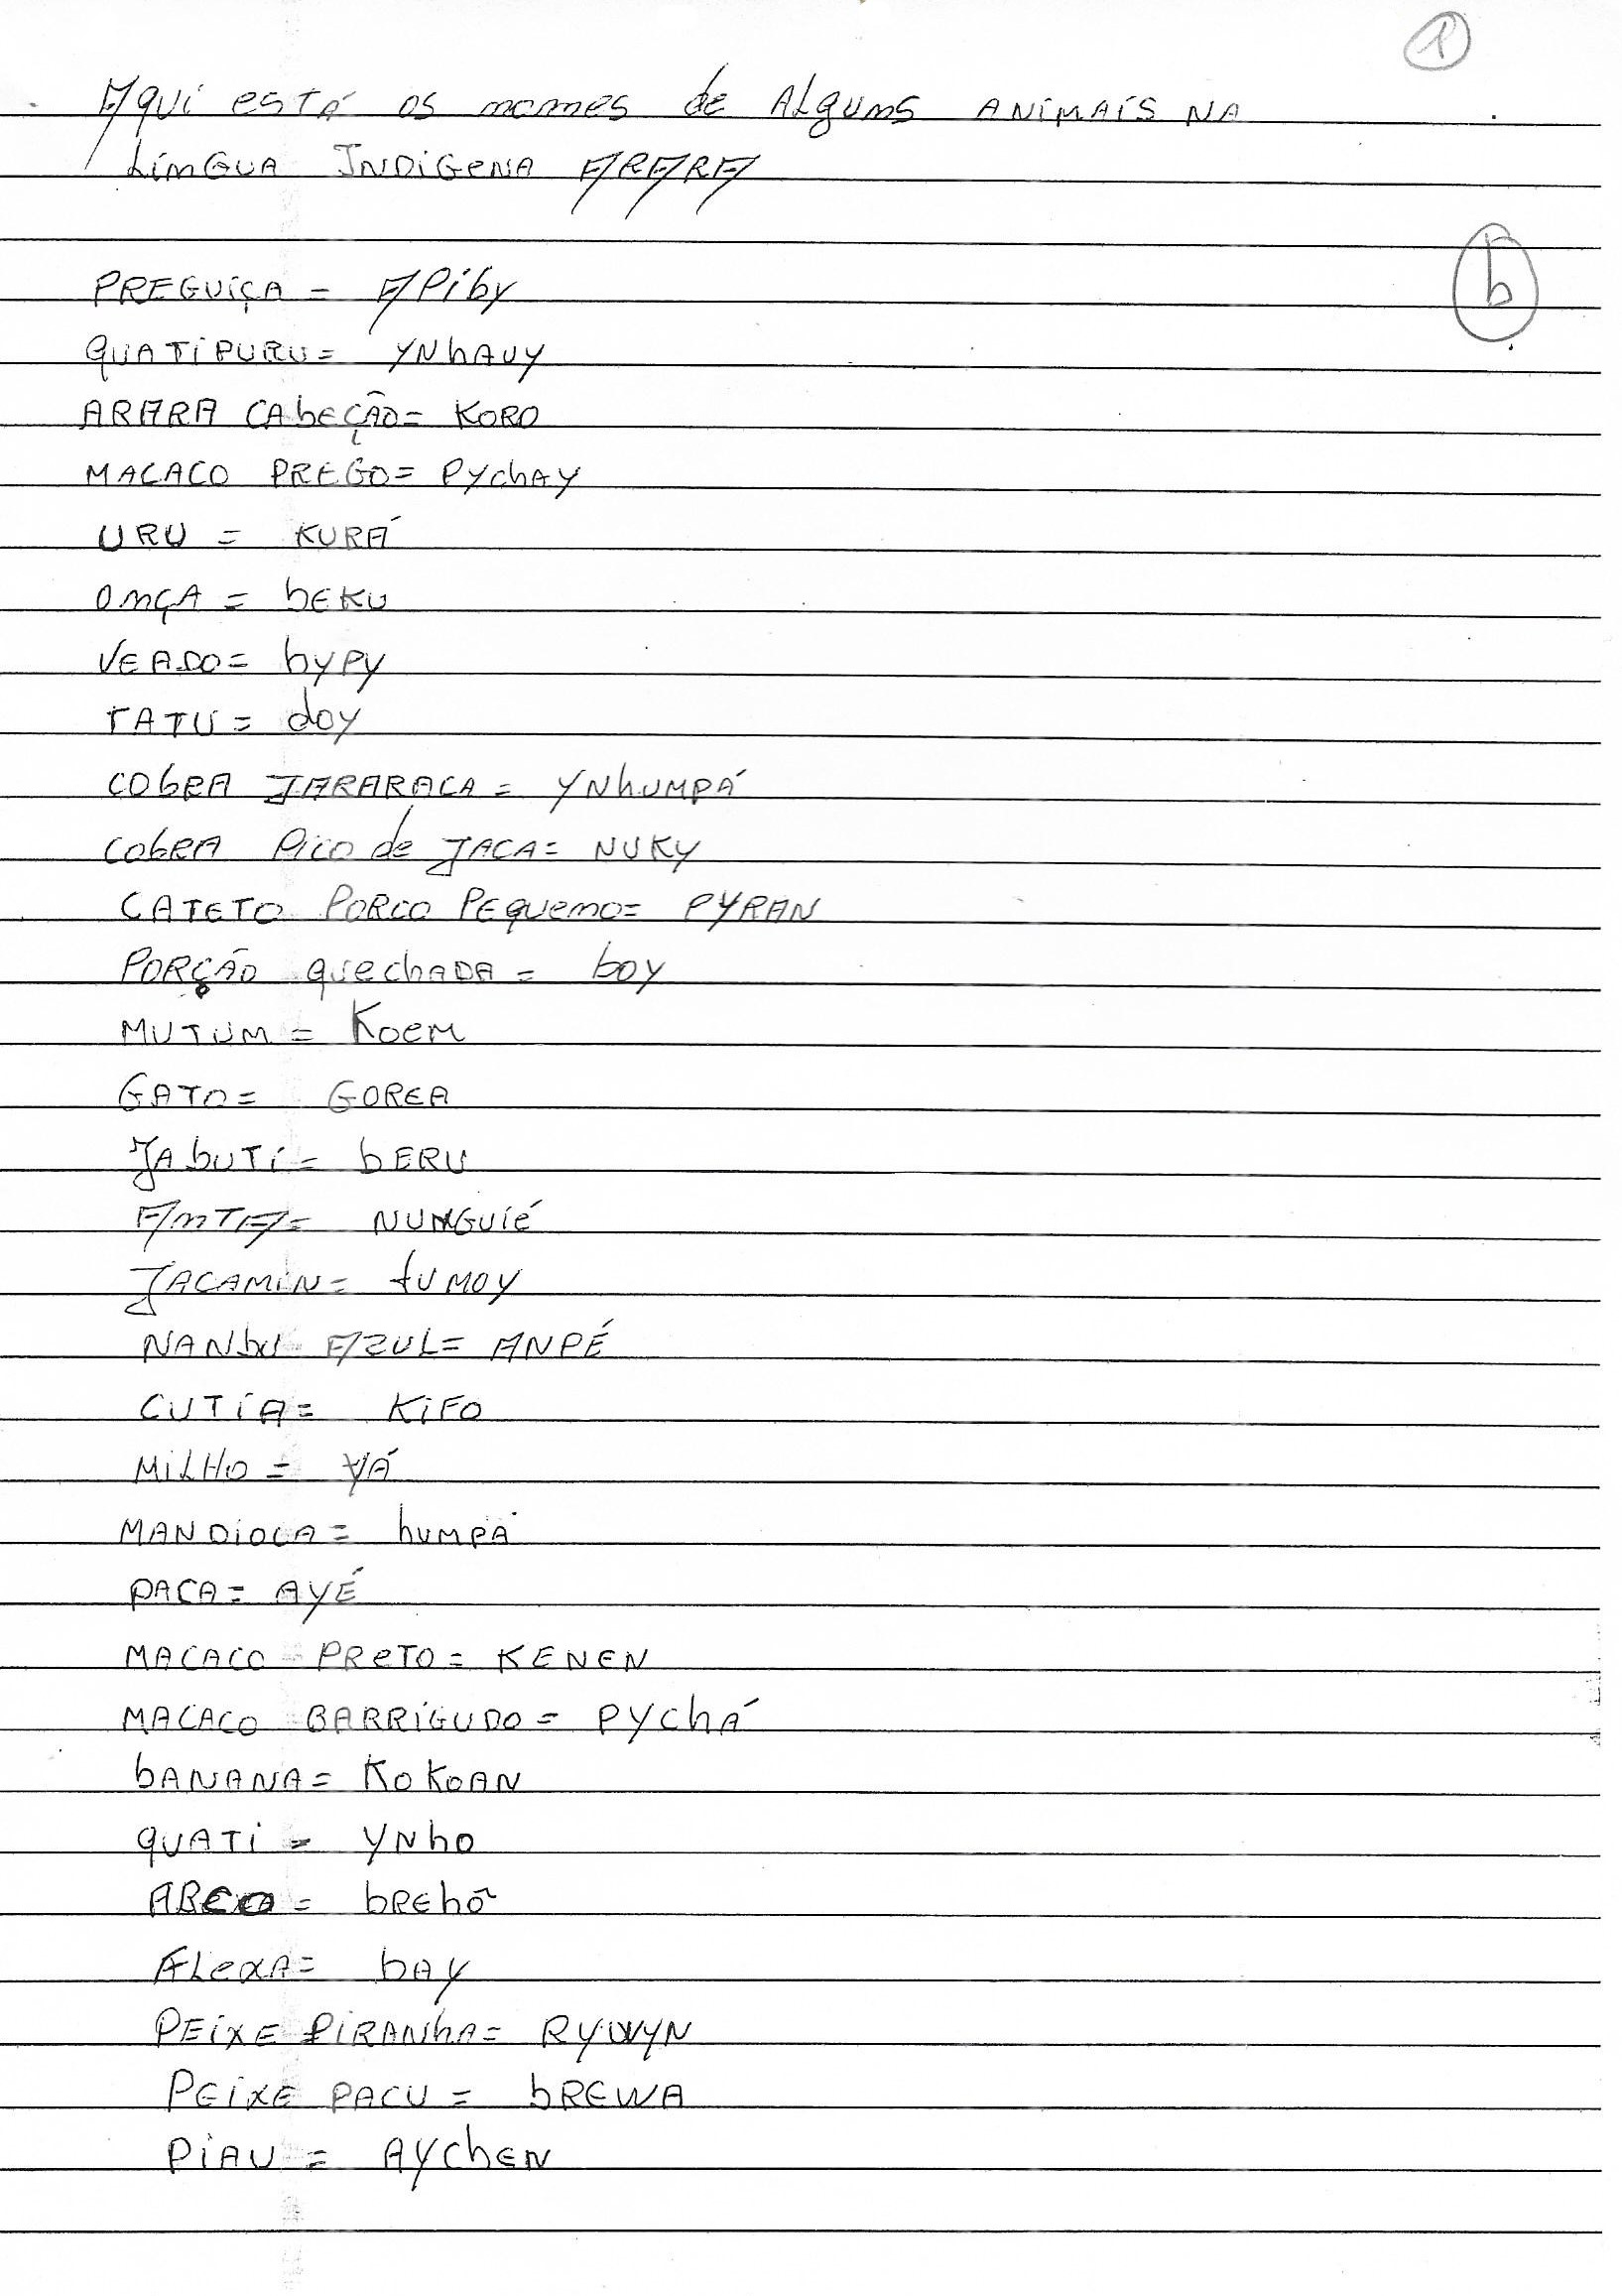 1
Aqui está os nomes de Alguns ANiMAiS NA
LiNGUA INDiGeNA ARARA
b
PREGUiÇA = APiby
QUATiPURU = YNhAUY
ARARA CAbEÇÃO = KORO
MACACO PREGO = PYchAY
URU = KURÁ
ONÇA = bEKU
VEADO = bYPY
TATU = doY
CObRA JARARACA = YNhUMPÁ
CObRA Pico de JACA = NUKY
CATETO PORCO PEqueno = PYRAN
PORÇÃO quechADA = boY
MUTUM = KoeM
GATO = GOREA
JAbUTi = bERU
ANTA = NUNGUiÉ
JACAMiN = tUMOY
NANbU AZUL = ANPÉ
CUTiA = KiFO
MiLHO = YÁ
MANDiOCA = hUMPÁ
PACA = AYÉ
MACACO PReTO = KENEN
MACACO BARRiGUDO = PYChÁ
bANANA = KOKOAN
QUATi = YNhO
ARCO = bREhÕ
FLeXA = bAY
PEiXE PiRANhA = RYWYN
PEiXE PACU = bREWA
PiAU = AYChEN